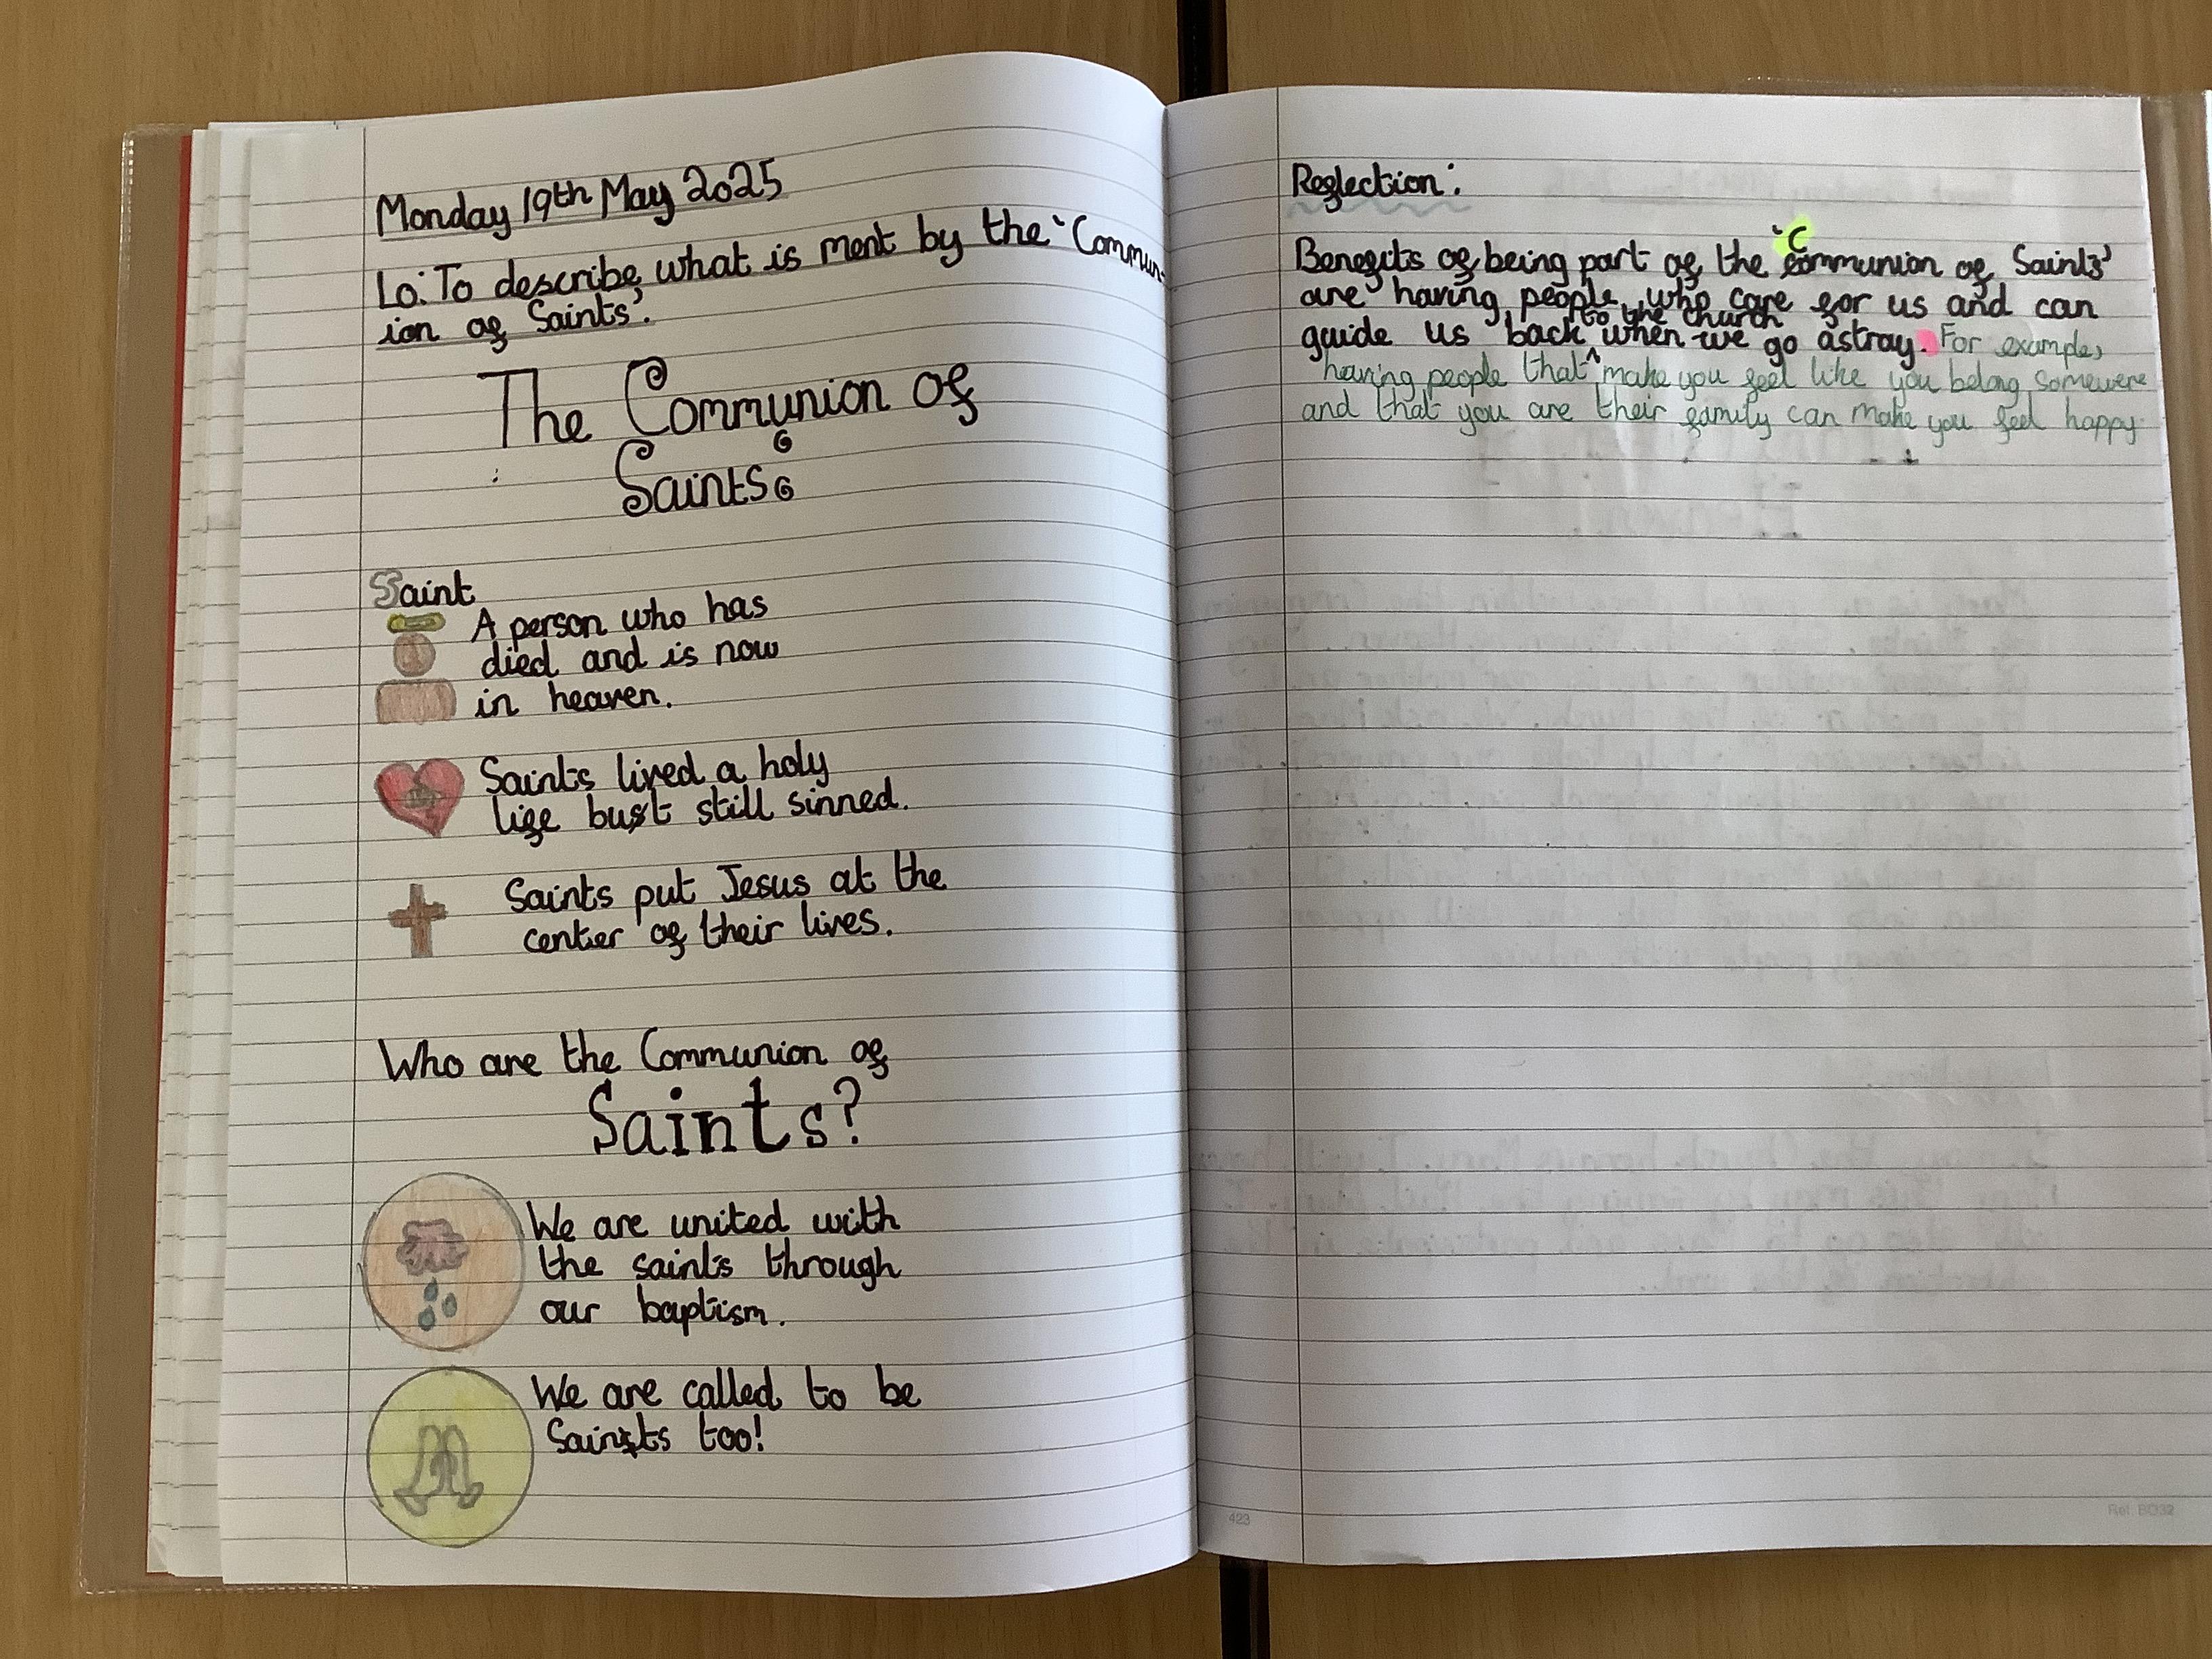 Monday 19th May 2025
Lo: To describe what is ment by the 'Commun-
ion of Saints'.
The Communion Of
Saints
Saint
A person who has
died and is now
in heaven.
Saints lived a holy
life but still sinned.
Saints put Jesus at the
center of their lives.
Who are the Communion of
Saints?
We are united with
the saints through
our baptism.
We are called to be
Saints too!
Reflection:
Benefits of being part of the 'Communion of Saints'
are having people who care for us and can
guide us back to the church when we go astray. For example,
having people that make you feel like you belong somewere
and that you are their family can make you feel happy.
423
Ref. BD32